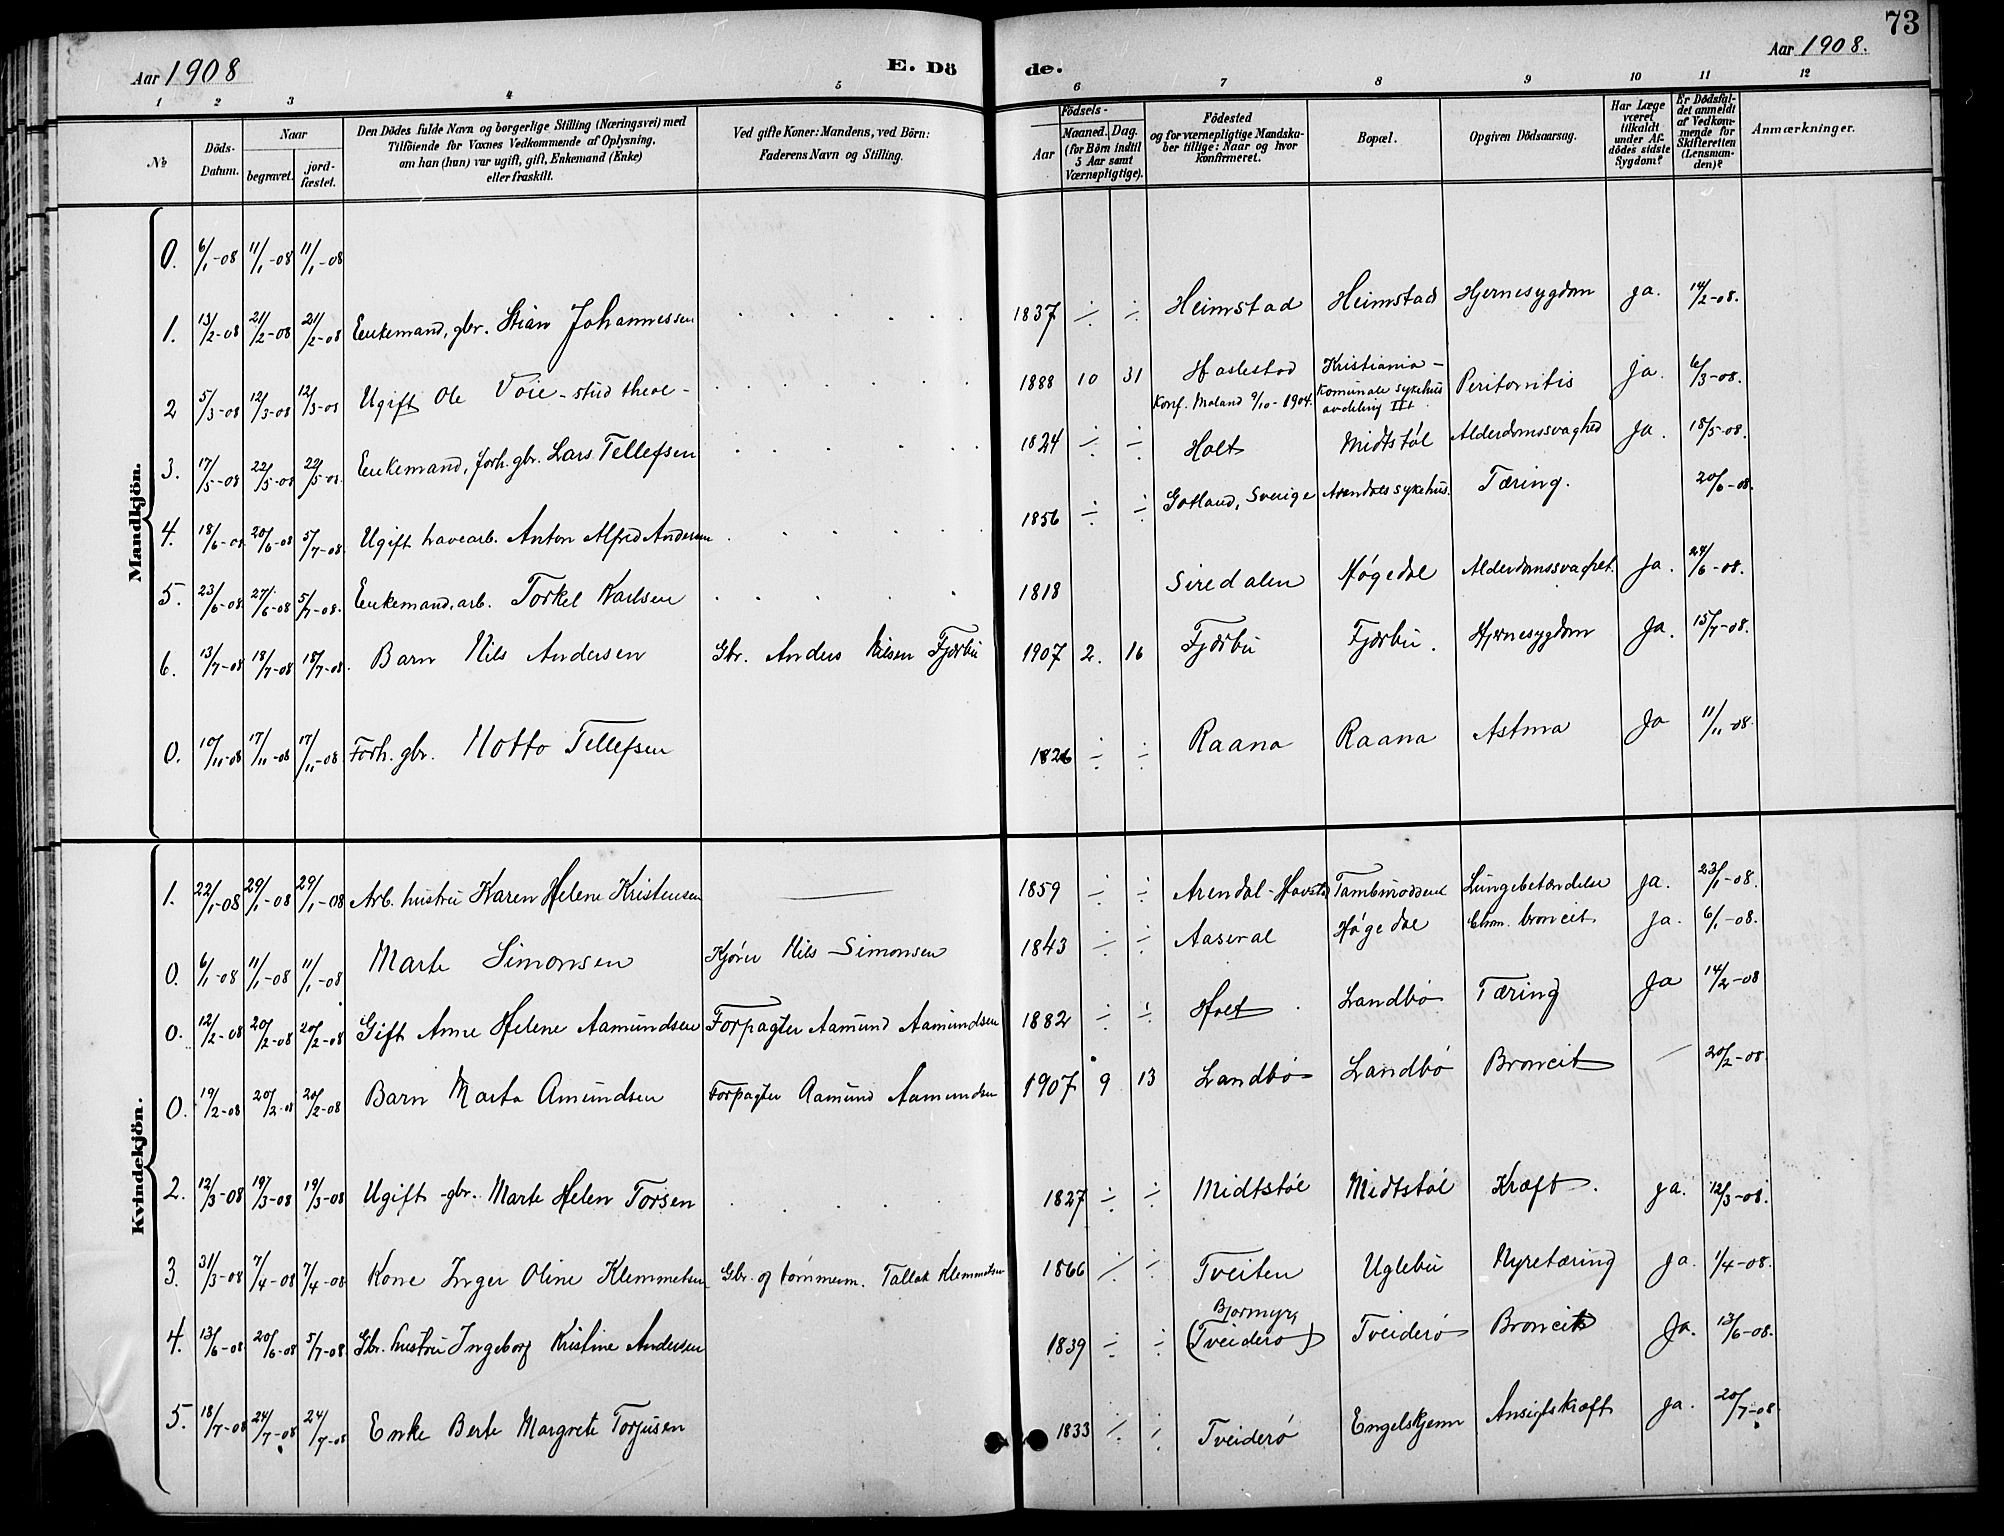 73
Aar 1908
E. Dö de.
Aar 1908.
1 2 3 4 5 6 7 8 9 10 11 12
№
Döds-Datum.
Naar
begravet.
jord-fæstet.
Den Dödes fulde Navn og borgerlige Stilling (Næringsvei) med
Tilföiende for Voxnes Vedkommende af Oplysning,
om han (hun) var ugift, gift, Enkemand (Enke)
eller fraskilt.
Ved gifte Koner: Mandens, ved Börn:
Faderens Navn og Stilling.
Födsels-
Aar
Maaned. Dag.
(for Börn indtil
5 Aar samt
Værnepligtige).
Födested
og for værnepligtige Mandska-
ber tillige: Naar og hvor
konfirmeret.
Bopæl.
Opgiven Dödsaarsag.
Har Læge
været
tilkaldt
under Af-
dödes sidste
Sygdom?
Er Dödsfal-
det anmeldt
af Vedkom-
mende for
Skifteretten
(Lensman-
den)?
Anmærkninger.
Mandkjön.
0. 6/1-08 11/1-08 11/1-08
1. 13/2-08 21/2-08 21/2-08 Enkemand, gbr. Stian Johannessen 1837 ÷ ÷ Heimstad Heimstad Hjernesygdom ja. 14/2-08.
2 5/3-08 12/3-08 12/3-08 Ugift Ole Voie - stud theol - 1888 10 31 Haslestad Konf. Moland 9/10-1904. Kristiania - Komunale sykehus avdeling III Peritonitis Ja. 6/3-08.
3. 17/5-08 22/5-08 22/5-08 Enkemand, forh. gbr. Lars Tellefsen 1824 ÷ ÷ Holt Midtstøl Alderdomssvaghed Ja. 18/5-08.
4. 18/6-08 20/6-08 5/7-08. Ugift havearb. Anton Alfred Andersen 1856 ÷ ÷ Gotland, Sverige Arendals sykehus. Tæring. 20/6-08.
5. 23/6-08 27/6-08 5/7-08. Enkemand, arb. Torkel Karlsen 1818 Siredalen Høgedal Alderdomssvaghet. Ja. 24/6-08.
6. 13/7-08 18/7-08 18/7-08. Barn Nils Andersen Gbr. Anders Nilsen Fjærbu 1907 2. 16 Fjærbu Fjærbu. Hjernesygdom Ja. 15/7-08.
0. 10/11-08 17/11-08 17/11-08 Forh. gbr. Notto Tellefsen 1826 ÷ ÷ Raana Raana Astma Ja 11/11-08.
Kvindekjön.
1. 22/1-08 29/1-08 29/1-08 Arb. hustru Karen Helene Kristensen — 1859 ÷ ÷ Arendal - Lungebetændelse ja. 23/1-08.
0. 6/1-08 11/1-08 11/1-08 Marte Simonsen Kjører Nils Simonsen 1843 ÷ ÷ Aaseral Høgedal Chron. broncit. Ja. 6/1-08.
0. 12/2-08 20/2-08 20/2-08 Gift Anne Helene Aamundsen Forpagter Aamund Aamundsen 1882 ÷ ÷ Holt Landbø Tæring Ja 14/2-08
0. 19/2-08 20/2-08 20/2-08 Barn Marta Amundsen Forpagter Aamund Aamundsen 1907 9 13 Landbø Landbø Broncit — 20/2-08.
2. 12/3-08 19/3-08 19/3-08 Ugift - gbr. Marte Helen Torsen 1827 ÷ ÷ Midtstøl Midtstøl Kræft. ja. 12/3-08.
3. 31/3-08 7/4-08 7/4-08 Kone Inger Oline Klemmetsen Gbr. og tømmerm. Tallak Klemmetsen 1866 ÷ ÷ Tveiten Uglebu Nyretæring Ja. 1/4-08.
4. 13/6-08 20/6-08 5/7-08 Gbr. hustru Ingeborg Kristine Andersen 1839 ÷ ÷ Bjormyr, (Tveiderø) Tveiderø Broncit Ja. 13/6-08.
5. 18/7-08 24/7-08 24/7-08 Enke Berte Margrete Torjusen 1833 ÷ ÷ Tveiderø Engelskjenn Ansigtskræft ja. 20/7-08